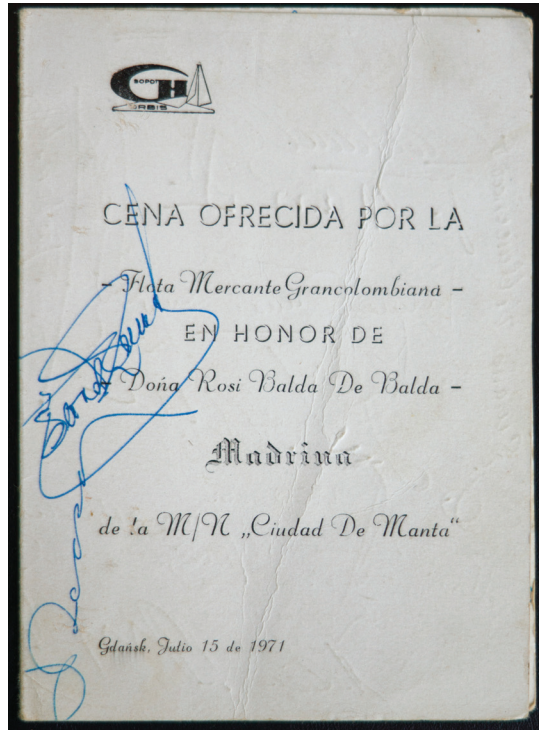 SOPOT
GH
ORBIS
CENA OFRECIDA POR LA
- Flota Mercante Grancolombiana -
EN HONOR DE
- Doña Rosi Balda De Balda -
Madrina
de la M/N „Ciudad De Manta“
Gdańsk, Julio 15 de 1971